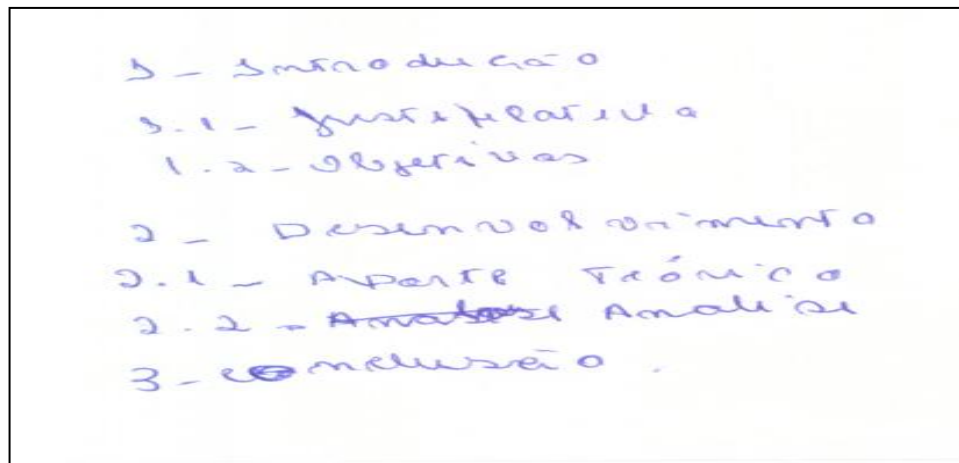 1 - Introdução
1.1 - Justificativa
1.2 - Objetivos
2 - Desenvolvimento
2.1 - Aporte Teórico
2.2 - Analise
3 - conclusão.